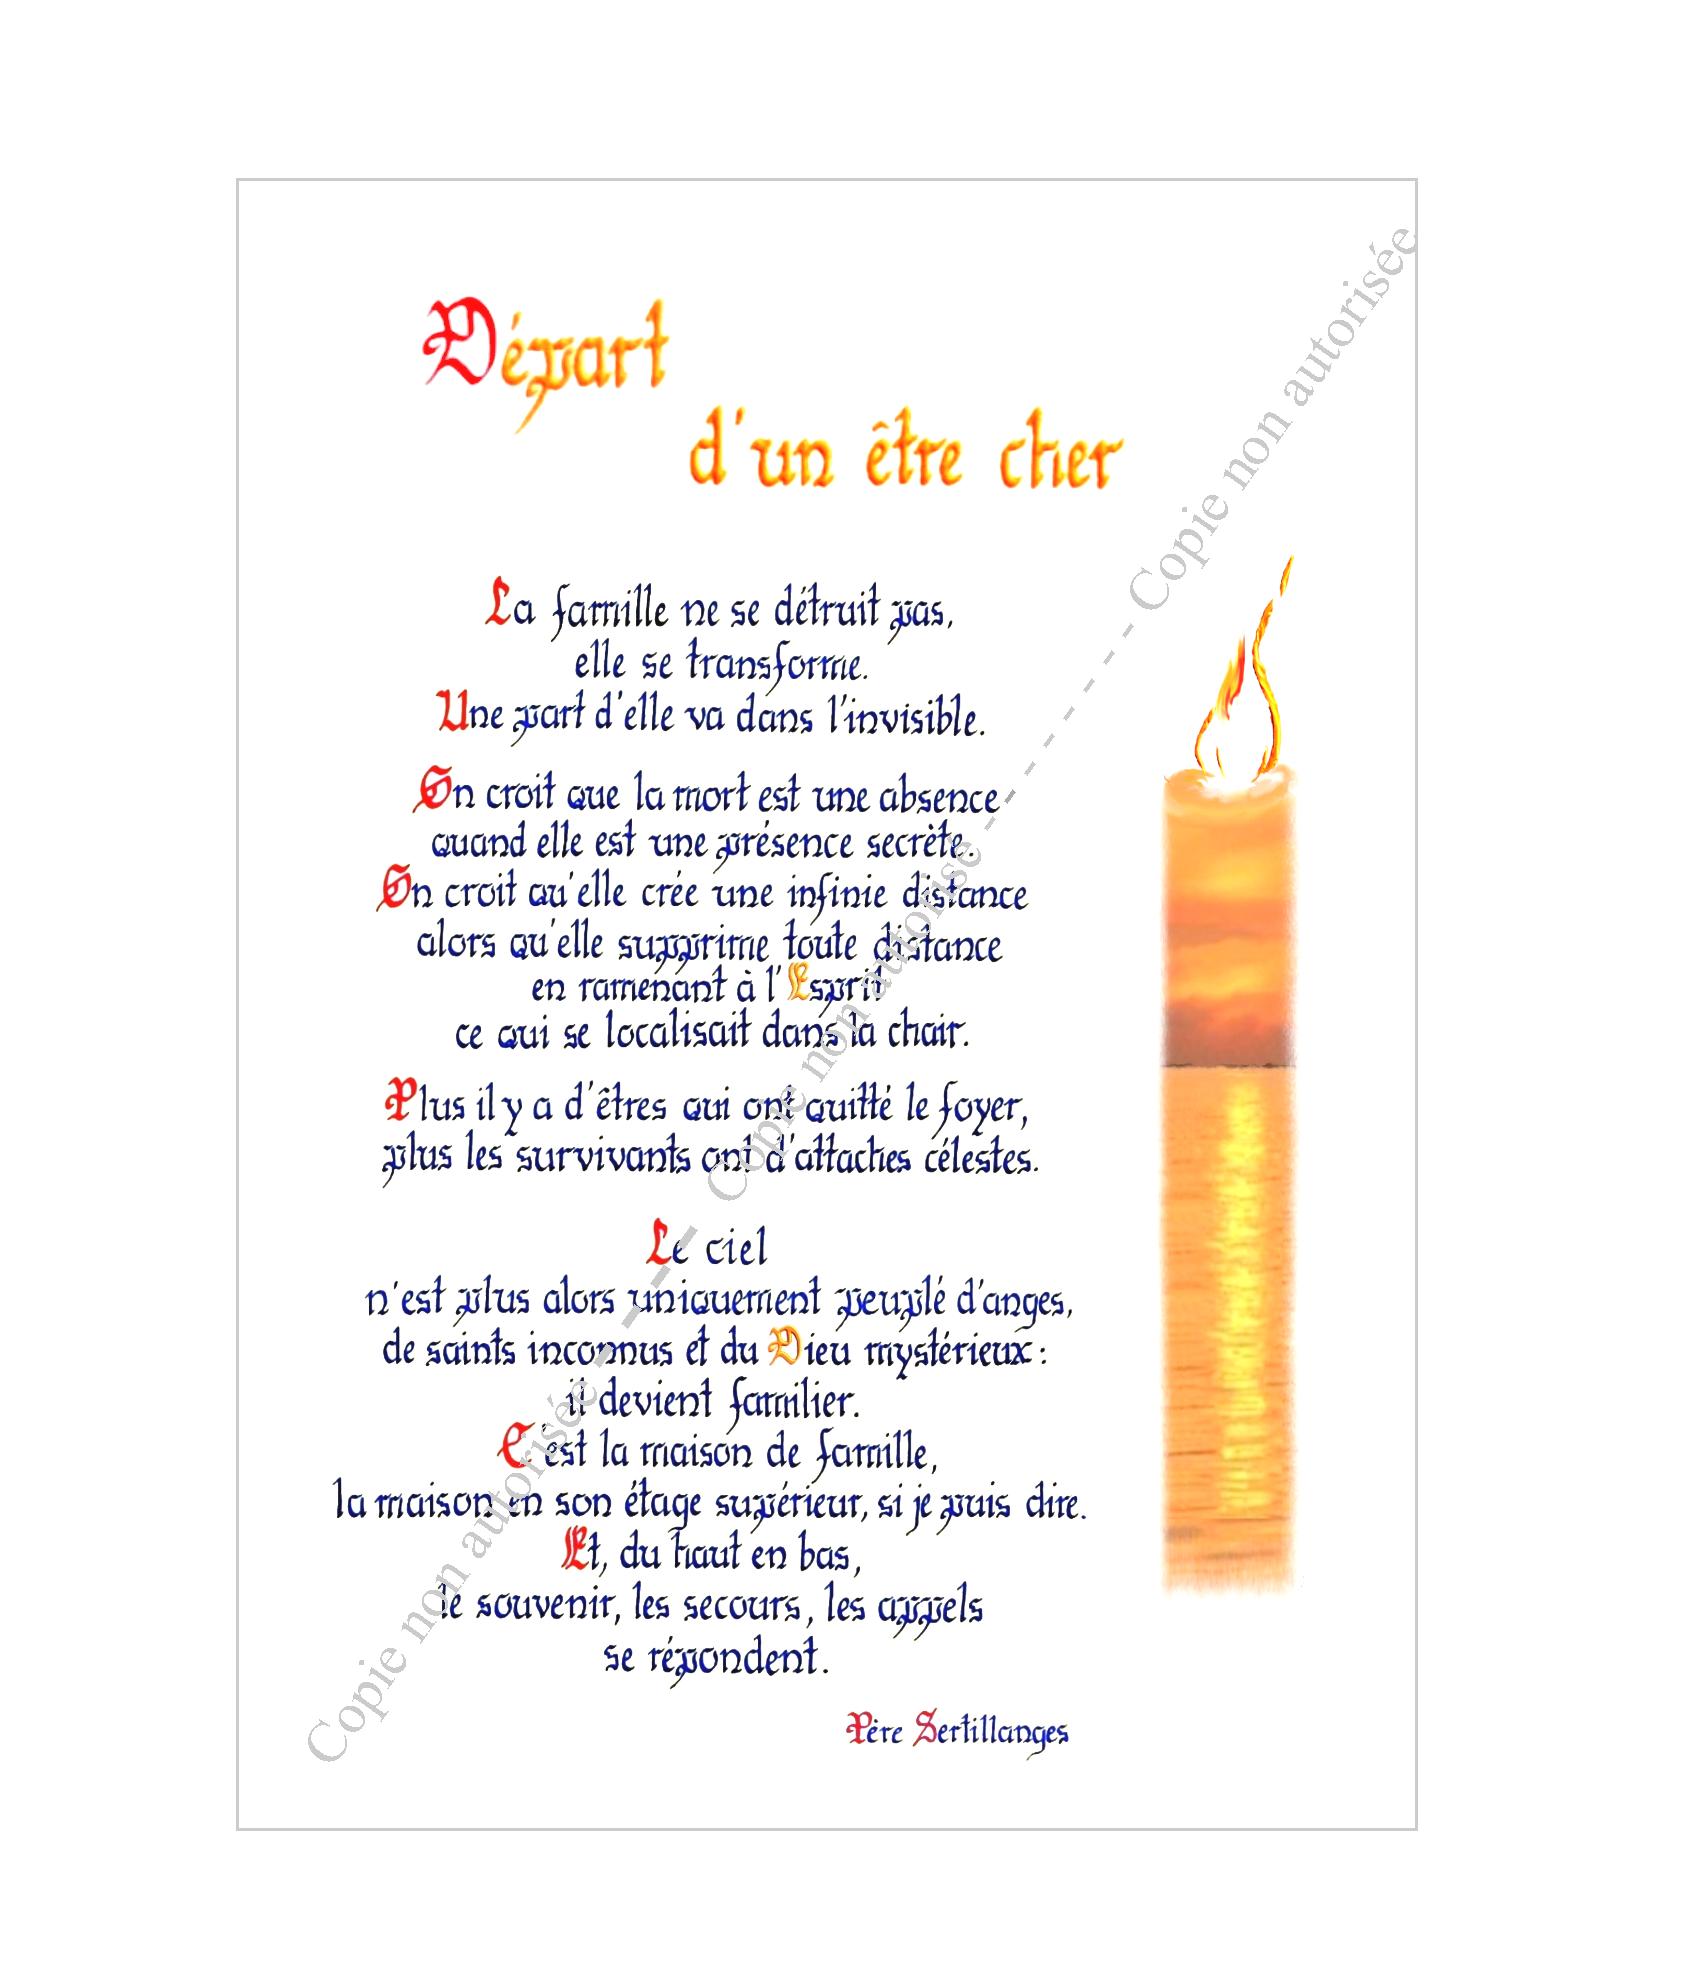 Départ
d'un être cher
La famille ne se détruit pas,
elle se transforme.
Une part d'elle va dans l'invisible.
On croit que la mort est une absence
quand elle est une présence secrète.
On croit qu'elle crée une infinie distance
alors qu'elle supprime toute distance
en ramenant à l'Esprit
ce qui se localisait dans la chair.
Plus il y a d'êtres qui ont quitté le foyer,
plus les survivants ont d'attaches célestes.
Le ciel
n'est plus alors uniquement peuplé d'anges,
de saints inconnus et du Dieu mystérieux :
il devient familier.
C'est la maison de famille,
la maison en son étage supérieur, si je puis dire.
Et, du haut en bas,
le souvenir, les secours, les appels
se répondent.
Père Sertillanges
Copie non autorisée - - - Copie non autorisé - - - - - - - Copie non autorisée